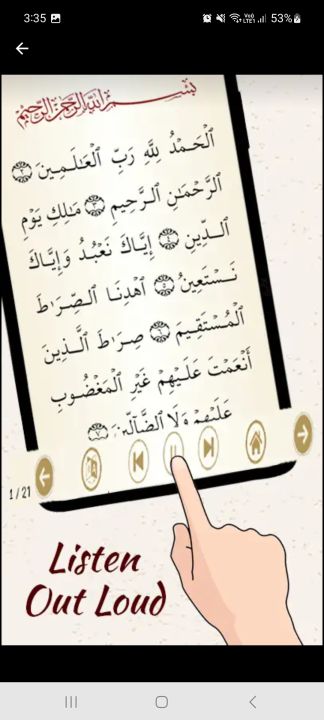 3:35
53%
بِسْمِ اللَّهِ الرَّحْمَٰنِ الرَّحِيمِ
الْحَمْدُ لِلَّهِ رَبِّ الْعَالَمِينَ ٢
الرَّحْمَٰنِ الرَّحِيمِ ٣ مَالِكِ يَوْمِ
الدِّينِ ٤ إِيَّاكَ نَعْبُدُ وَإِيَّاكَ
نَسْتَعِينُ ٥ اهْدِنَا الصِّرَاطَ
الْمُسْتَقِيمَ ٦ صِرَاطَ الَّذِينَ
أَنْعَمْتَ عَلَيْهِمْ غَيْرِ الْمَغْضُوبِ
عَلَيْهِمْ وَلَا الضَّالِّينَ ٧
1/21
Listen
Out Loud